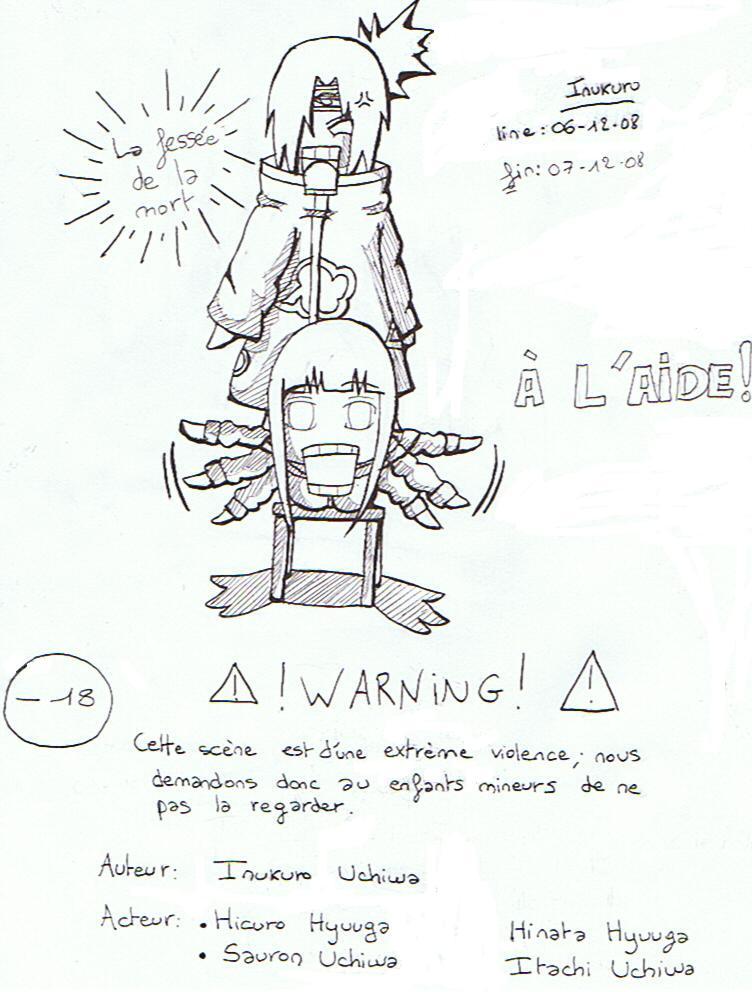 Inukuro
line : 06-12-08
fin : 07-12-08
La fessée
de la
mort
À L'AIDE!
-18
! WARNING !
Cette scène est d'une extrème violence, nous
demandons donc au enfants mineurs de ne
pas la regarder.
Auteur: Inukuro Uchiwa
Acteur: • Hicuro Hyuuga Hinata Hyuuga
• Sauron Uchiwa Itachi Uchiwa